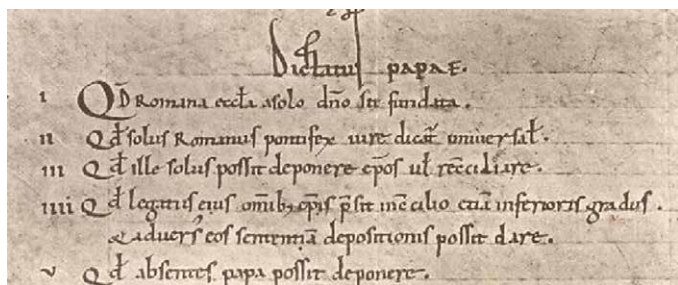 Dictatus papae.
I QD Romana eccła a solo dño sit fundata.
II Qđ solus Romanus pontifex iure dicat̄ universał.
III Qđ ille solus possit deponere ep̄os uł recōciliare.
IIII Qđ legatus eius om̄ib; ep̄is p̄sit in cōcilio etiā inferioris gradus.
& advers̓ eos sententiā depositionis possit dare.
V Qđ absentes papa possit deponere.